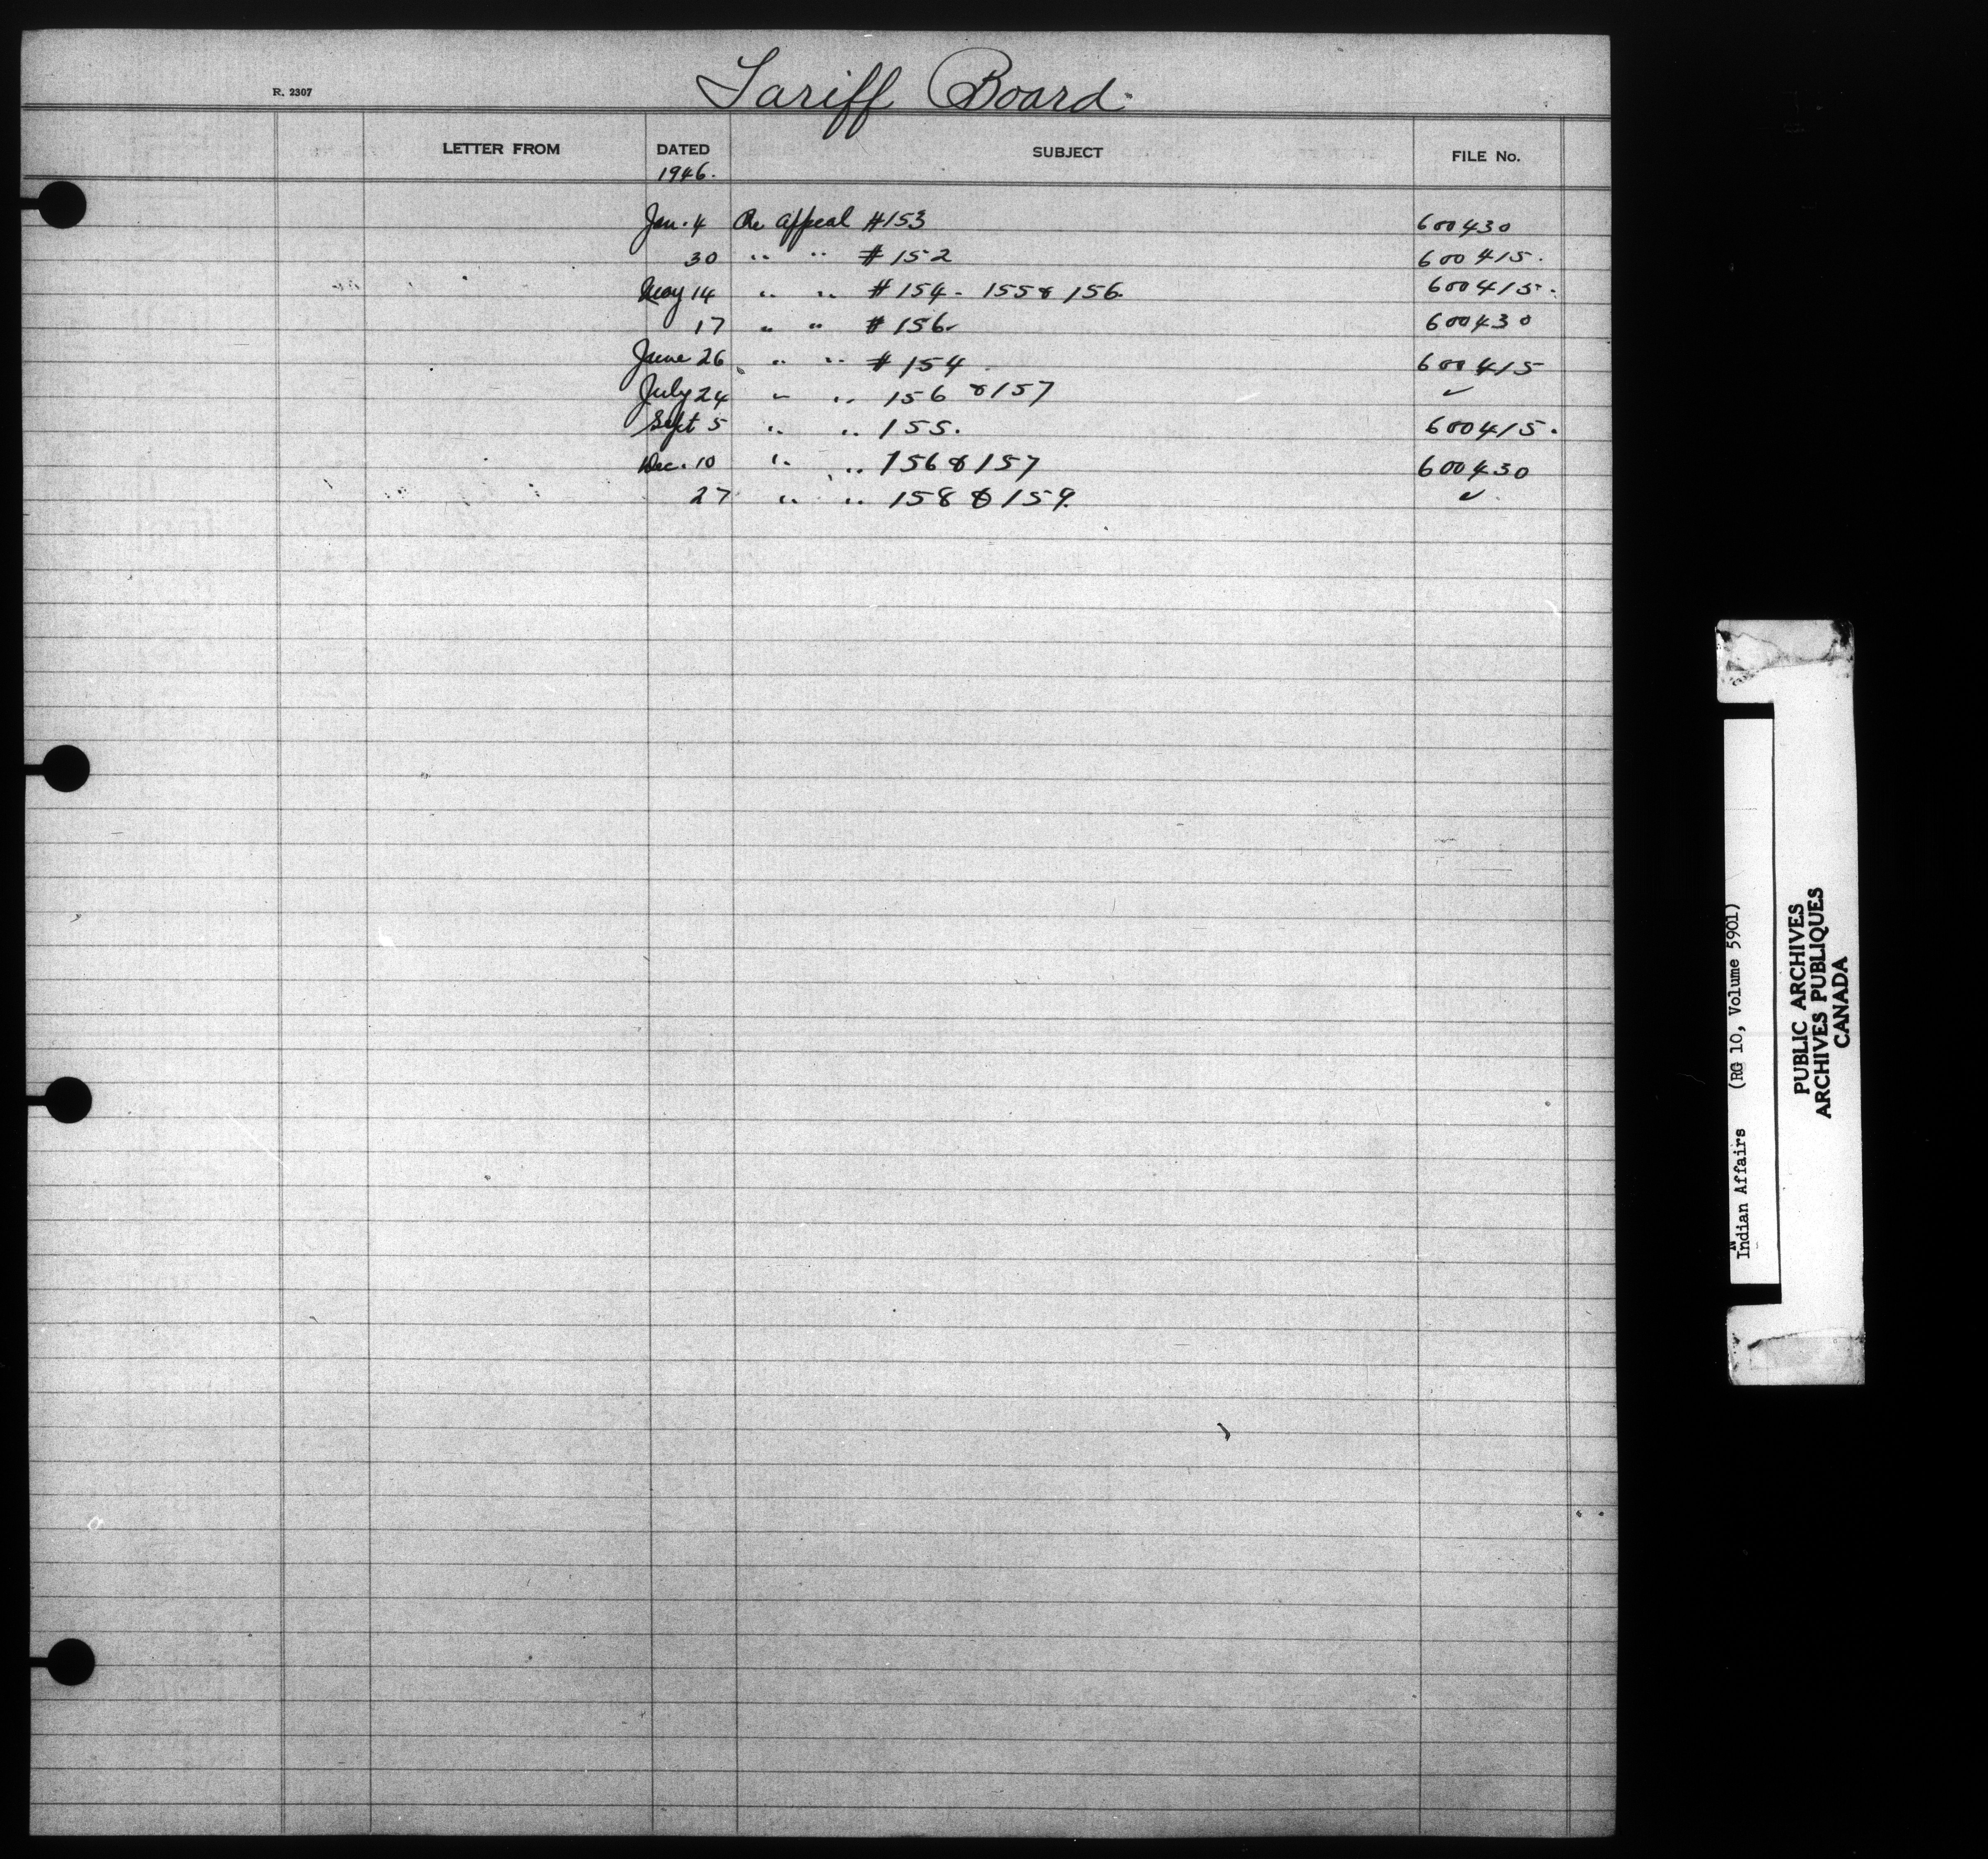 Tariff Board.
R. 2307
LETTER FROM DATED SUBJECT FILE No.
1946.
Jan. 4 Re appeal #153 600430
30 " " #152 600415.
May 14 " " #154 - 155 & 156. 600415.
17 " " #156. 600430
June 26 " " #154 600415
July 24 " " 156 & 157 ✓
Sept 5 " " 155. 600415.
Dec. 10 " " 156 & 157 600430
27 " " 158 & 159. ✓
Indian Affairs (RG 10, Volume 5901)
PUBLIC ARCHIVES
ARCHIVES PUBLIQUES
CANADA